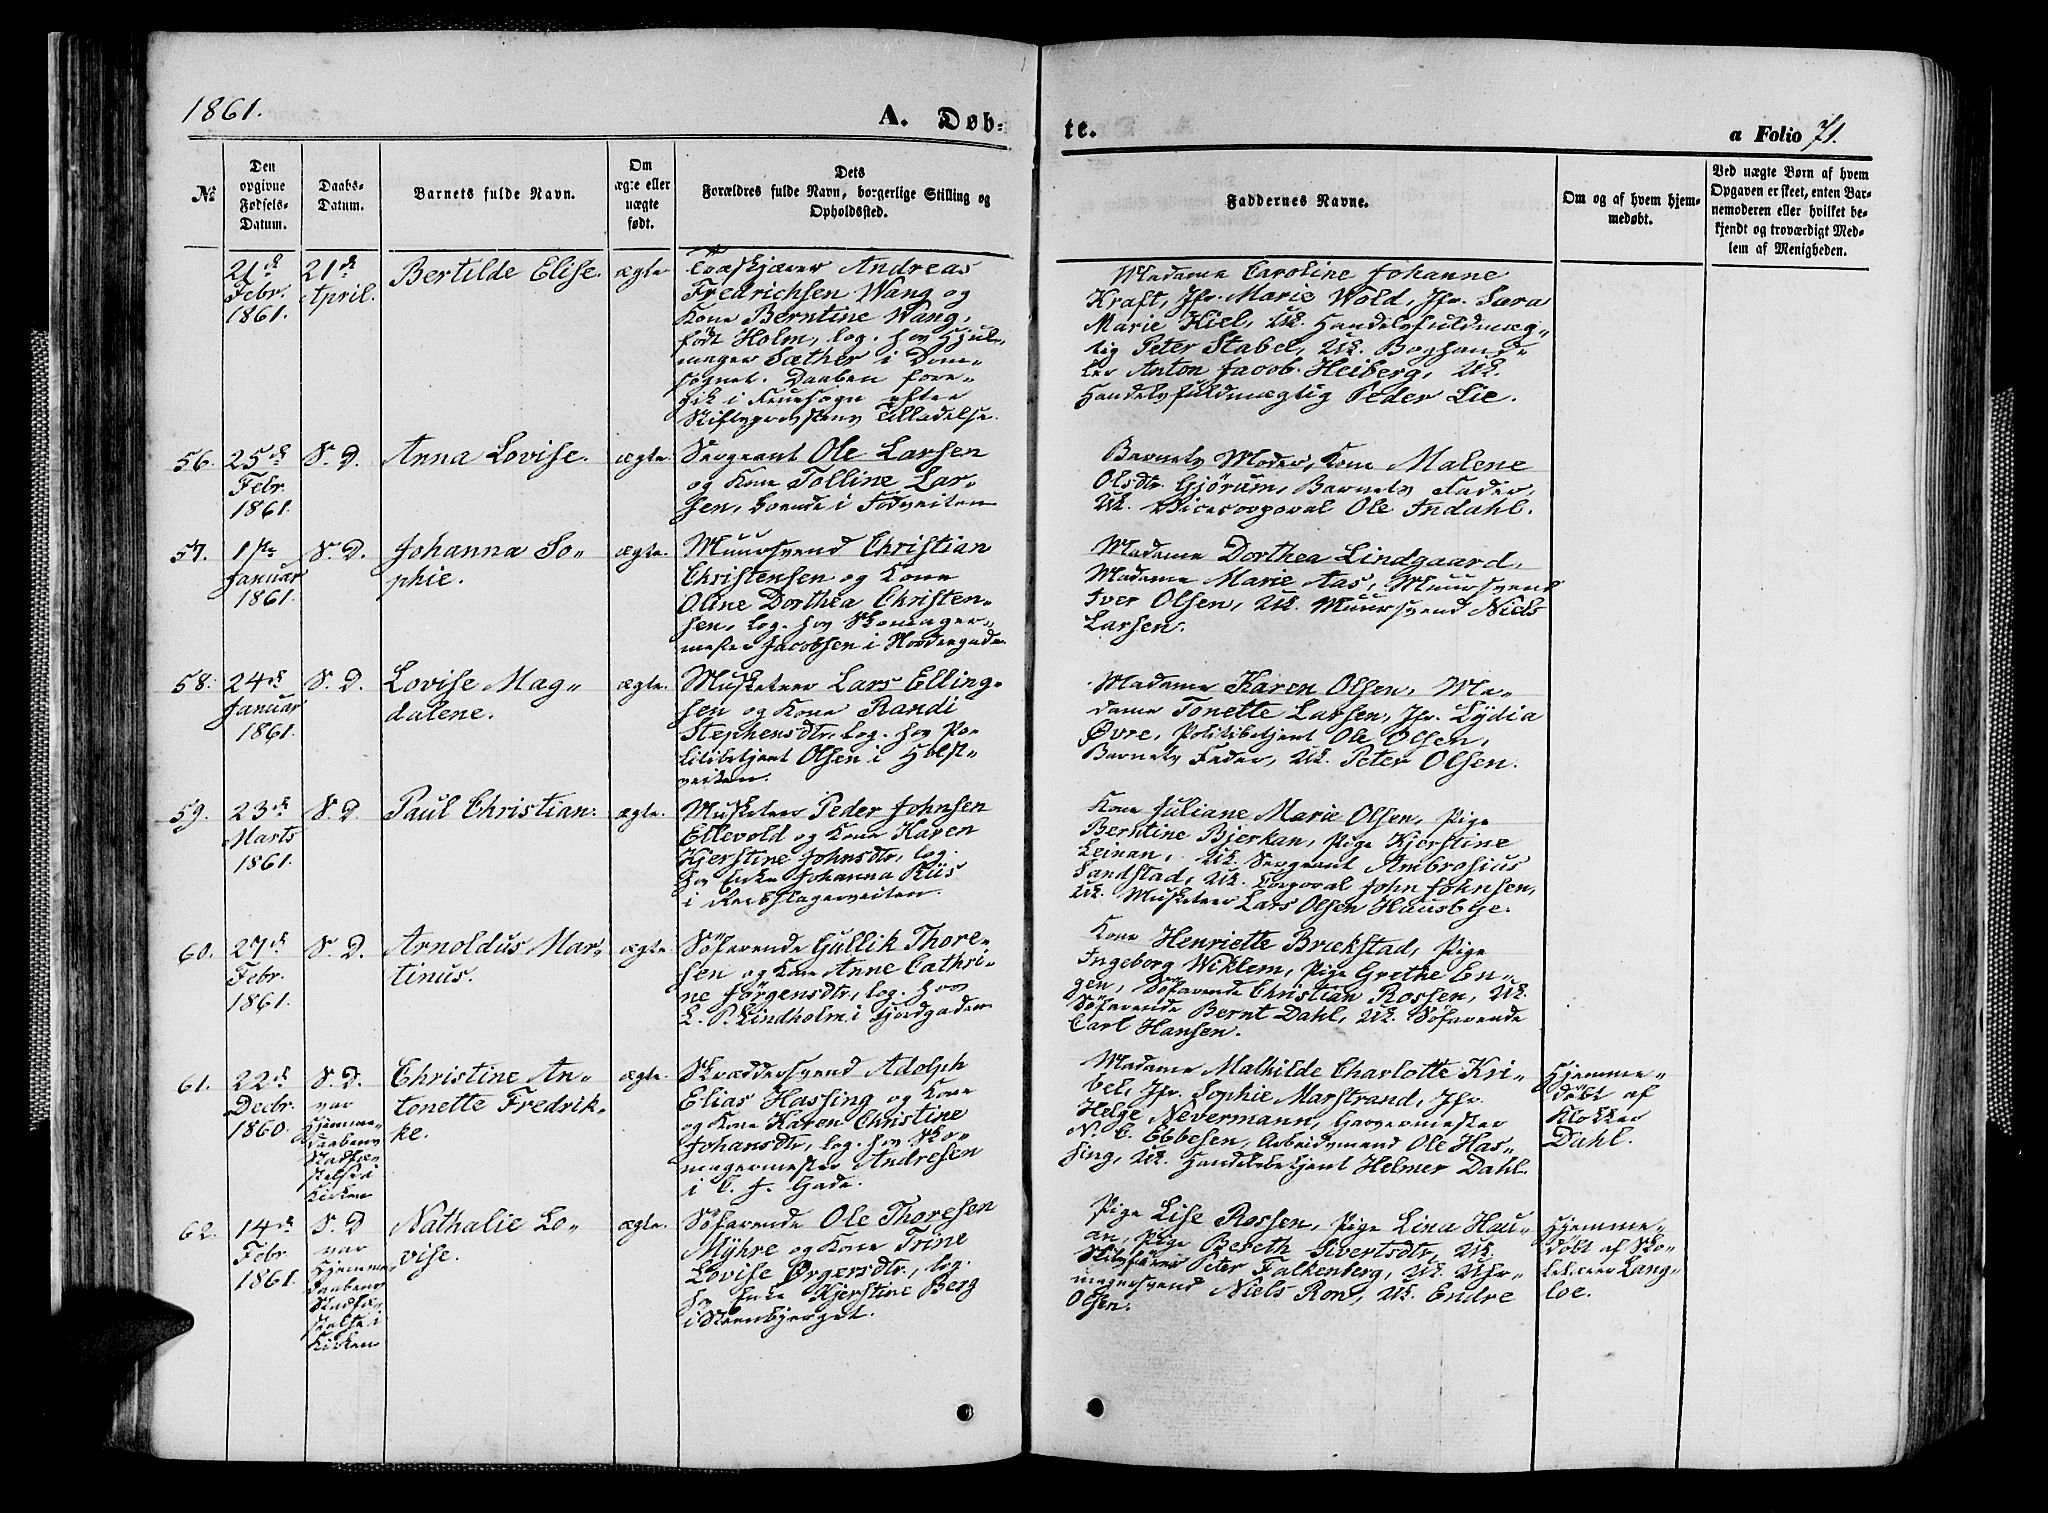 1861.
A. Døb-
te.
a Folio 71.
№
Den
opgivne
Fødsels-
Datum.
Daabs-
Datum.
Barnets fulde Navn.
Om
ægte eller
uægte
født.
Dets
Forældres fulde Navn, borgerlige Stilling og
Opholdssted.
Faddernes Navne.
Om og af hvem hjem-
medøbt.
Ved uægte Børn af hvem
Opgaven er skeet, enten Bar-
nemoderen eller hvilket be-
kjendt og troværdigt Med-
lem af Menigheden.
21de
Febr.
1861.
21de
April.
Bertilde Elise.
ægte
Andreas
Fredrichsen Wang og
Kone Berntine Wang,
født Holm, log. hos Hjul-
mager Sæther i Dom-
sognet. Daaben fore-
gik i Fruesogn efter
Stiftsprovstens Tilladelse.
Madame Caroline Johanne
Kraft, Jfr. Marie Wold, Jfr. Sara
Marie Hiel, Uk. Handelsfuldmæg-
tig Peter Stabel, Uk. Boghand-
ler Anton Jacob Heiberg, Uk.
Handelsfuldmægtig Peder Lie.
56.
25de
Febr.
1861.
S. D.
Anna Lovise.
ægte.
Sergeant Ole Larsen
og Kone Tolline Lar-
sen, boende i Fodveiten
Barnets Moder, Kone Malene
Olsdtr. Gjørum, Barnets Fader,
Uk. Vicecorporal Ole Indahl.
57.
1ste
Januar
1861.
S. D.
Johanna So-
phie.
ægte.
Muursvend Christian
Christensen og Kone
Oline Dorthea Christen-
sen, log. hos Skomager-
mester Jacobsen i Nordregade.
Madame Dorthea Lindgaard,
Madame Marie Aas, Muursvend
Iver Olsen, Uk. Muursvend Niels
Larsen.
58.
24de
Januar
1861.
S. D.
Lovise Mag-
dalene.
ægte.
Musketeer Lars Elling-
sen og Kone Randi
Stephensdtr., log. hos Po-
litibetjent Olsen i Holst-
veiten.
Madame Karen Olsen, Ma-
dame Tonette Larsen, Jfr. Lydia
Øvre, Politibetjent Ole Olsen,
Barnets Fader, Uk. Peter Olsen.
59.
23de
Marts
1861.
S. D
Paul Christian.
ægte.
Musketeer Peder Johnsen
Ellevold og Kone Karen
Kjerstine Johnsdtr., log.
hos Enke Johanna Riis
i Reebslagerveiten.
Kone Juliane Marie Olsen, Pige
Berntine Bjerkan, Pige Kjerstine
Leinan, Uk. Sergeant Ambrosius
Sandstad, Uk. Corporal John Johnsen,
Uk. Musketeer Lars Olsen Hausbye.
60.
27de
Febr.
1861.
S. D.
Arnoldus Mar-
tinus.
ægte
Søfarende Gullik Thore-
sen og Kone Anne Cathri-
ne Jørgensdtr., log. hos
L. P. Lindholm i Fjordgaden
Kone Henriette Brækstad, Pige
Ingeborg Wiklem, Pige Grethe En-
gen, Søfarende Christian Rossen, Uk.
Søfarende Bernt Dahl, Uk. Søfarende
Carl Hansen.
61.
22de
Decbr.
1860.
S. D.
var
Hjemme-
daabens
Stadfæ-
stelse i
Kirken
Christine An-
tonette Fredrik-
ke.
ægte.
Skræddersvend Adolph
Elias Hassing og Kone
og Kone Karen Christine
Johansdtr., log. hos Sko-
magermester Andresen
i C. J. Gade.
Madame Mathilde Charlotte Kri-
bel, Jfr. Sophie Marstrand, Jfr.
Helge Nevermann, Garvermester
N. C. Ebbesen, Arbeidsmand Ole Has-
sing, Uk. Handelsbetjent Helmer Dahl.
Hjemme-
døbt af
Klokker
Dahl.
62.
14de
Febr.
1861.
S. D
var
Hjemme-
daabens
Stadfæ-
stelse i
Kirken
Nathalie Lo-
vise.
ægte.
Søfarende Ole Thoresen
Myhre og Kone Trine
Lovise Ørgersdtr., log.
hos Enke Kjerstine Berg
i Steenbjerget.
Pige Lise Rossen, Pige Lina Hau-
an, Pige Bereth Sivertsdtr., Uk.
Peter Falkenberg, Uk. Uhr-
magersvend Niels Ron, Uk. Endre
Olsen.
Hjemme-
døbt af Sko-
lelærer Lang-
loe.